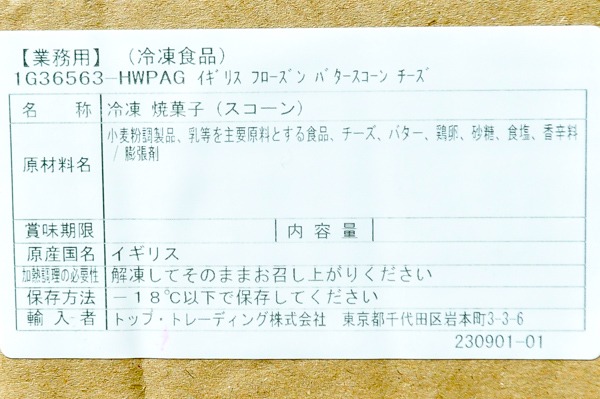 【業務用】 （冷凍食品）
1G36563-HWPAG ｲｷﾞﾘｽ ﾌﾛｰｽﾞﾝ ﾊﾞﾀｰｽｺｰﾝ ﾁｰｽﾞ
名 称 冷凍 焼菓子（スコーン）
原材料名 小麦粉調製品、乳等を主要原料とする食品、チーズ、バター、鶏卵、砂糖、食塩、香辛料
/ 膨張剤
賞味期限 内容量
原産国名 イギリス
加熱調理の必要性 解凍してそのままお召し上がりください
保存方法 －18℃以下で保存してください
輸入者 トップ・トレーディング株式会社 東京都千代田区岩本町3-3-6
230901-01